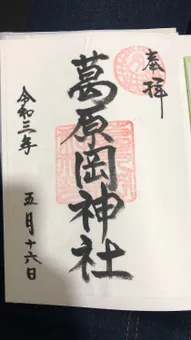 奉拝
葛原岡神社
令和三年
五月十六日